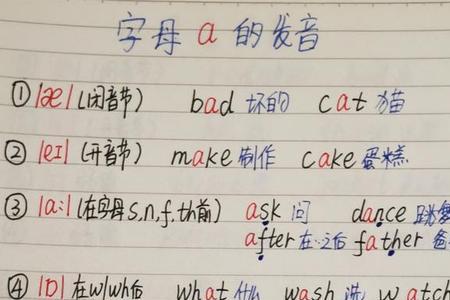 字母 a 的发音
① /æ/ (闭音节) bad 坏的 cat 猫
② /eɪ/ (开音节) make 制作 cake 蛋糕
③ /a:/ (在字母s,n,f,th前) ask 问 dance 跳舞
after 在…之后 father 爸
④ /ɒ/ 在w/wh后 what 什么 wash 洗 watch